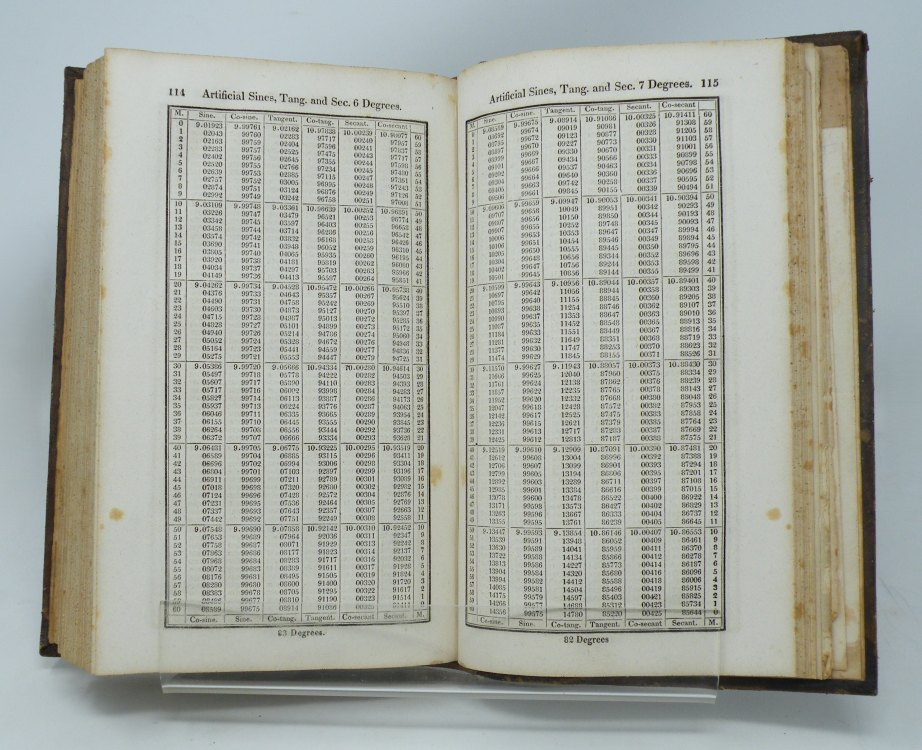 114 Artificial Sines, Tang. and Sec. 6 Degrees.
M. Sine. Co-sine. Tangent. Co-tang. Secant. Co-secant
0 9.01923 9.99761 9.02162 10.97838 10.00239 10.98077 60
1 02043 99760 02283 97717 00240 97957 59
2 02163 99759 02404 97596 00241 97837 58
3 02283 99757 02525 97475 00243 97717 57
4 02402 99756 02645 97355 00244 97598 56
5 02520 99755 02766 97234 00245 97480 55
6 02639 99753 02885 97115 00247 97361 54
7 02757 99752 03005 96995 00248 97243 53
8 02874 99751 03124 96876 00249 97126 52
9 02992 99749 03242 96758 00251 97008 51
10 9.03109 9.99748 9.03361 10.96639 10.00252 10.96891 50
11 03226 99747 03479 96521 00253 96774 49
12 03342 99745 03597 96403 00255 96658 48
13 03458 99744 03714 96286 00256 96542 47
14 03574 99742 03832 96168 00258 96426 46
15 03690 99741 03948 96052 00259 96310 45
16 03805 99740 04065 95935 00260 96195 44
17 03920 99738 04181 95819 00262 96080 43
18 04034 99737 04297 95703 00263 95966 42
19 04149 99736 04413 95587 00264 95851 41
20 9.04262 9.99734 9.04528 10.95472 10.00266 10.95738 40
21 04376 99733 04643 95357 00267 95624 39
22 04490 99731 04758 95242 00269 95510 38
23 04603 99730 04873 95127 00270 95397 37
24 04715 99728 04987 95013 00272 95285 36
25 04828 99727 05101 94899 00273 95172 35
26 04940 99726 05214 94786 00274 95060 34
27 05052 99724 05328 94672 00276 94948 33
28 05164 99723 05441 94559 00277 94836 32
29 05275 99721 05553 94447 00279 94725 31
30 9.05386 9.99720 9.05666 10.94334 10.00280 10.94614 30
31 05497 99718 05778 94222 00282 94503 29
32 05607 99717 05890 94110 00283 94393 28
33 05717 99716 06002 93998 00284 94283 27
34 05827 99714 06113 93887 00286 94173 26
35 05937 99713 06224 93776 00287 94063 25
36 06046 99711 06335 93665 00289 93954 24
37 06155 99710 06445 93555 00290 93845 23
38 06264 99708 06556 93444 00292 93736 22
39 06372 99707 06666 93334 00293 93628 21
40 9.06481 9.99705 9.06775 10.93225 10.00295 10.93519 20
41 06589 99704 06885 93115 00296 93411 19
42 06696 99702 06994 93006 00298 93304 18
43 06804 99701 07103 92897 00299 93196 17
44 06911 99699 07211 92789 00301 93089 16
45 07018 99698 07320 92680 00302 92982 15
46 07124 99696 07428 92572 00304 92876 14
47 07231 99695 07536 92464 00305 92769 13
48 07337 99693 07643 92357 00307 92663 12
49 07442 99692 07751 92249 00308 92558 11
50 9.07548 9.99690 9.07858 10.92142 10.00310 10.92452 10
51 07653 99689 07964 92036 00311 92347 9
52 07758 99687 08071 91929 00313 92242 8
53 07863 99686 08177 91823 00314 92137 7
54 07968 99684 08283 91717 00316 92032 6
55 08072 99683 08389 91611 00317 91928 5
56 08176 99681 08495 91505 00319 91824 4
57 08280 99680 08600 91400 00320 91720 3
58 08383 99678 08705 91295 00322 91617 2
59 08486 99677 08810 91190 00323 91514 1
60 08589 99675 08914 91086 00325 91411 0
Co-sine. Sine. Co-tang. Tangent. Co-secant Secant. M.
83 Degrees.
Artificial Sines, Tang. and Sec. 7 Degrees. 115
M. Sine. Co-sine. Tangent. Co-tang. Secant. Co-secant
9.08589 9.99675 9.08914 10.91086 10.00325 10.91411 60
99674 09019 90981 00326 91308 59
99672 09123 90877 00328 91205 58
99670 09227 90773 00330 91103 57
99669 09330 90670 00331 91001 56
99667 09434 90566 00333 90899 55
99666 09537 90463 00334 90798 54
99664 09640 90360 00336 90696 53
99663 09742 90258 00337 90595 52
99661 09845 90155 00339 90494 51
9.09606 9.99659 9.09947 10.90053 10.00341 10.90394 50
09707 99658 10049 89951 00342 90293 49
09807 99656 10150 89850 00344 90193 48
09907 99655 10252 89748 00345 90093 47
10006 99653 10353 89647 00347 89994 46
10106 99651 10454 89546 00349 89894 45
10205 99650 10555 89445 00350 89795 44
10304 99648 10656 89344 00352 89696 43
10402 99647 10756 89244 00353 89598 42
10501 99645 10856 89144 00355 89499 41
9.10599 9.99643 9.10956 10.89044 10.00357 10.89401 40
10697 99642 11056 88944 00358 89303 39
10795 99640 11155 88845 00360 89205 38
10893 99638 11254 88746 00362 89107 37
10990 99637 11353 88647 00363 89010 36
11087 99635 11452 88548 00365 88913 35
11184 99633 11551 88449 00367 88816 34
11281 99632 11649 88351 00368 88719 33
11377 99630 11747 88253 00370 88623 32
11474 99629 11845 88155 00371 88526 31
9.11570 9.99627 9.11943 10.88057 10.00373 10.88430 30
11666 99625 12040 87960 00375 88334 29
11761 99624 12138 87862 00376 88239 28
11857 99622 12235 87765 00378 88143 27
11952 99620 12332 87668 00380 88048 26
12047 99618 12428 87572 00382 87953 25
12142 99617 12525 87475 00383 87858 24
12236 99615 12621 87379 00385 87764 23
12331 99613 12717 87283 00387 87669 22
12425 99612 12813 87187 00388 87575 21
9.12519 9.99610 9.12909 10.87091 10.00390 10.87481 20
12612 99608 13004 86996 00392 87388 19
12706 99607 13099 86901 00393 87294 18
12799 99605 13194 86806 00395 87201 17
12892 99603 13289 86711 00397 87108 16
12985 99601 13384 86616 00399 87015 15
13078 99600 13478 86522 00400 86922 14
13171 99598 13573 86427 00402 86829 13
13263 99596 13667 86333 00404 86737 12
13355 99595 13761 86239 00405 86645 11
9.13447 9.99593 9.13854 10.86146 10.00407 10.86553 10
13539 99591 13948 86052 00409 86461 9
13630 99589 14041 85959 00411 86370 8
13722 99588 14134 85866 00412 86278 7
13813 99586 14227 85773 00414 86187 6
13904 99584 14320 85680 00416 86096 5
13994 99582 14412 85588 00418 86006 4
14085 99581 14504 85496 00419 85915 3
14175 99579 14597 85403 00421 85825 2
14266 99577 14688 85312 00423 85734 1
14356 99575 14780 85220 00425 85644 0
Co-sine. Sine. Co-tang. Tangent. Co-secant Secant. M.
82 Degrees